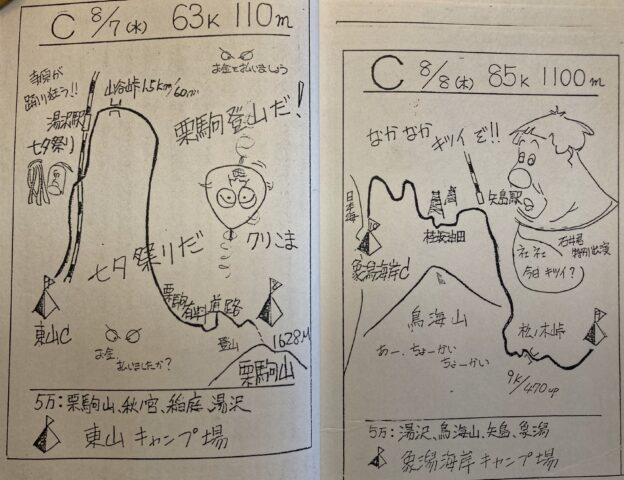 C 8/7(水) 63K 110m
お金を払いましょう
寺泉が
踊り狂う!!
山谷峠 1.5km/60m
湯沢駅
七夕祭り
栗駒登山だ!
クリこま
七夕祭りだ
栗駒有料道路
東山C
お金、
払いましたか?
登山
1628M
栗駒山
5万:栗駒山、秋ノ宮、稲庭、湯沢
東山キャンプ場
C 8/8(木) 85K 1100m
なかなか
キツイぞ!!
日本海
矢島駅
桂坂油田
石井君
特別出演
象潟海岸C
社社
今日キツイ?
鳥海山
あー、ちょーかい
ちょーかい
松ノ木峠
9K/470up
5万:湯沢、鳥海山、矢島、象潟
象潟海岸キャンプ場